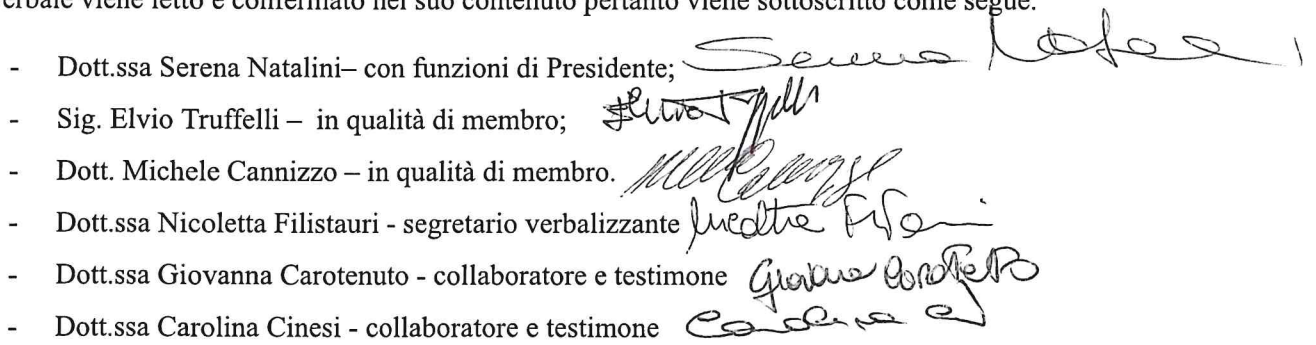 erbale viene letto e confermato nel suo contenuto pertanto viene sottoscritto come segue.
- Dott.ssa Serena Natalini– con funzioni di Presidente;
- Sig. Elvio Truffelli – in qualità di membro;
- Dott. Michele Cannizzo – in qualità di membro.
- Dott.ssa Nicoletta Filistauri - segretario verbalizzante
- Dott.ssa Giovanna Carotenuto - collaboratore e testimone
- Dott.ssa Carolina Cinesi - collaboratore e testimone